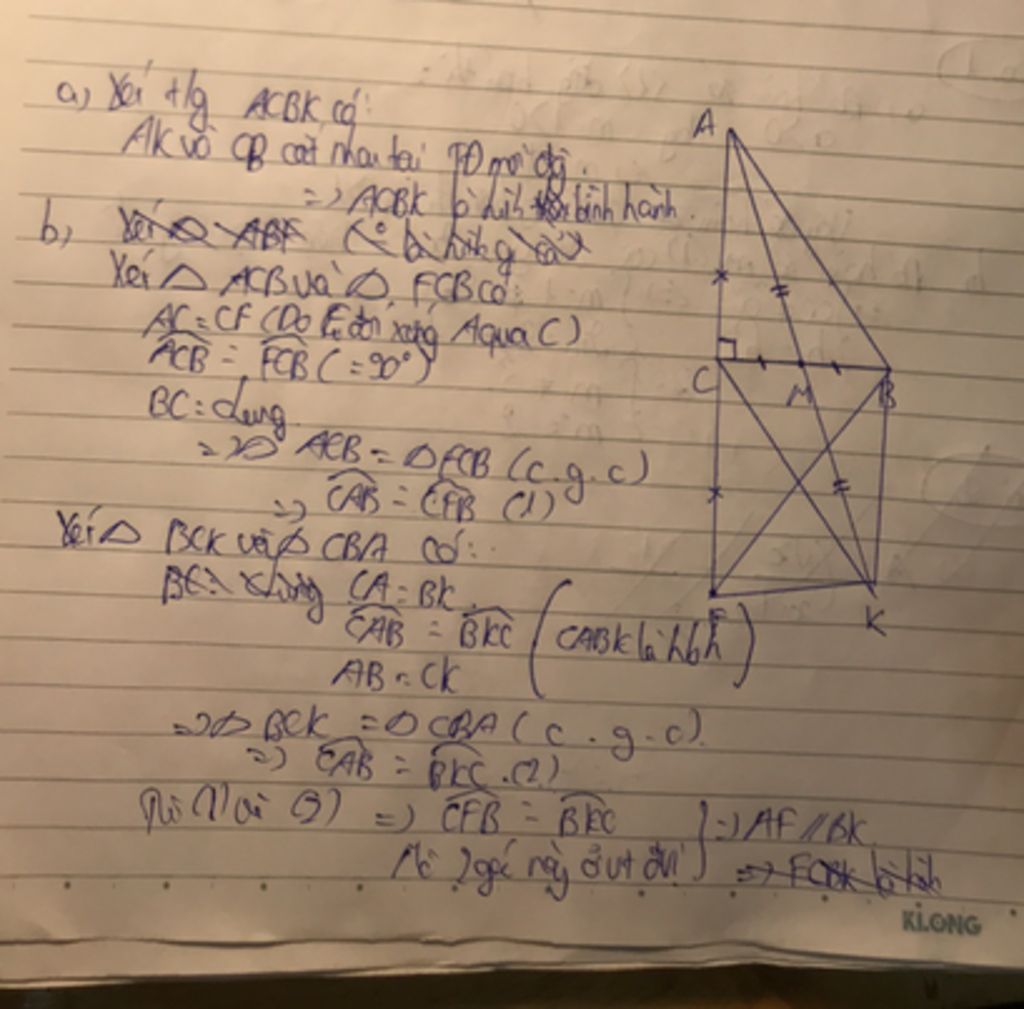 a) Xét t/g ACBK có:
AK và CB cắt nhau tại TĐ mỗi đg.
=> ACBK là hình bình hành.
b) Xét △ ABF
Xét △ ACB và △ FCB có:
AC = CF (Do F đối xứng A qua C)
ACB = FCB (= 90°)
BC: chung
=> △ ACB = △ FCB (c.g.c)
=> CAB = CFB (1)
Xét △ BCK và △ CBA có:
BC: chung CA = BK
CAB = BKC (CABK là hbh)
AB = CK
=> △ BCK = △ CBA (c.g.c).
=> CAB = BKC (2)
Từ (1) và (2) => CFB = BKC
Mà 2 góc này ở vt đối => AF // BK
=> FCBK là hh
A
C
M
B
F
K
KLONG